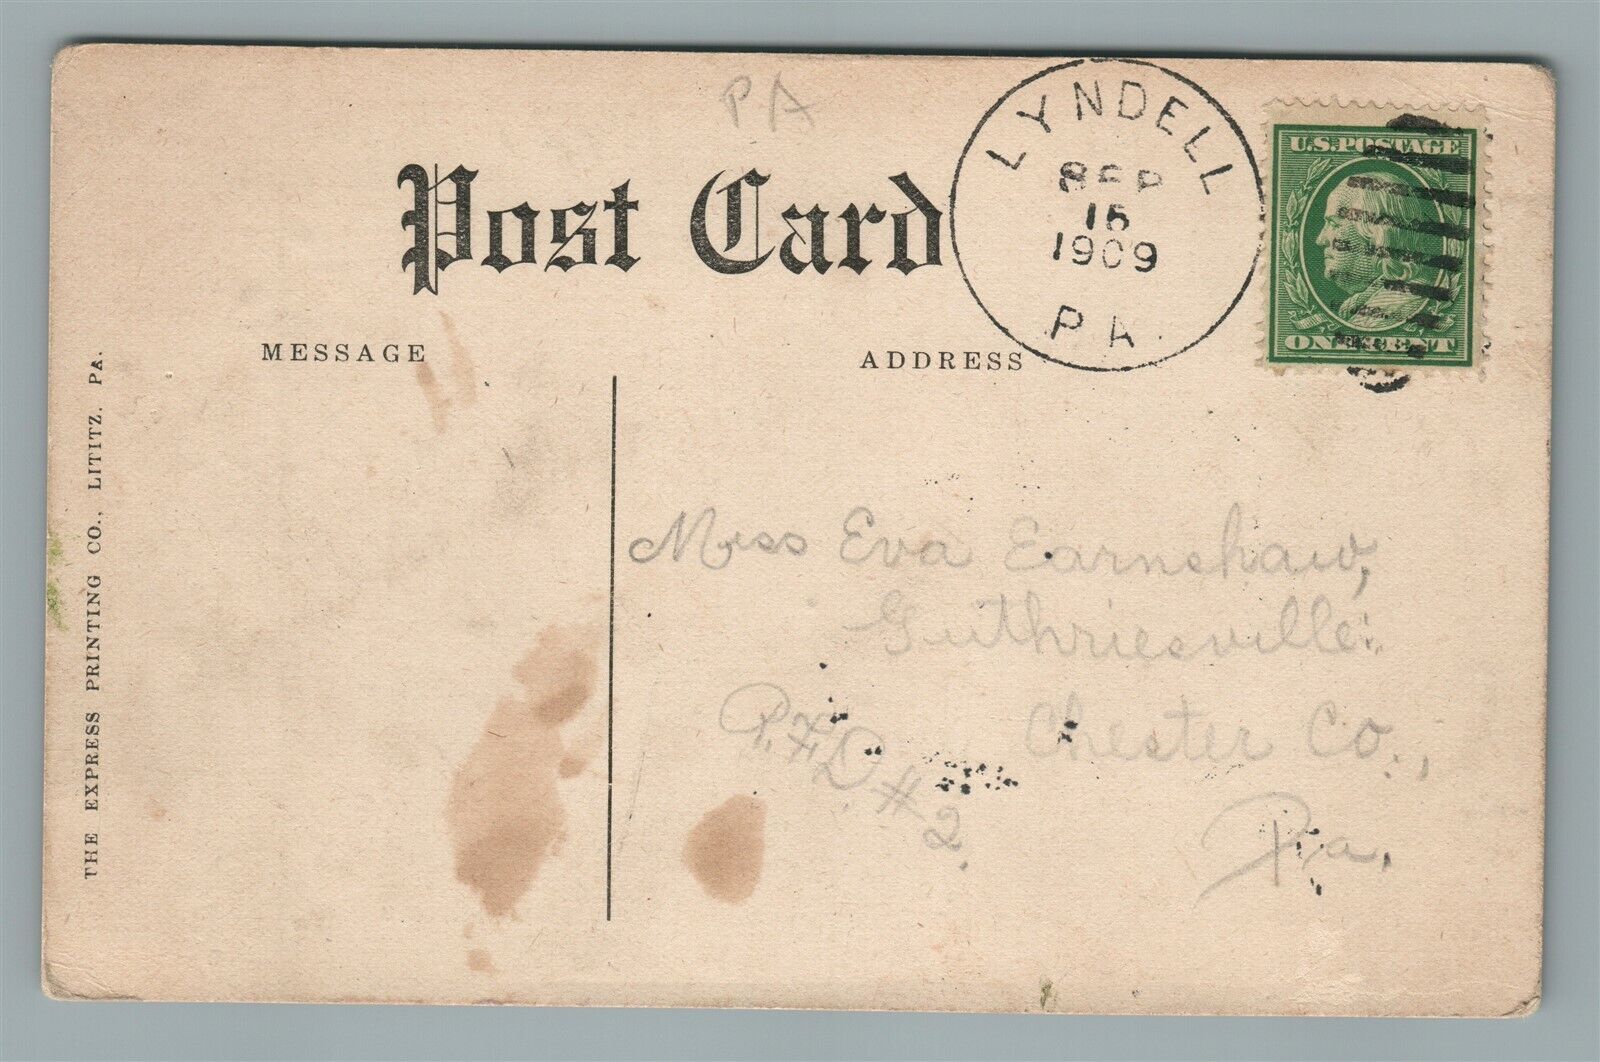 PA
LYNDELL
SEP
15
1909
PA.
U.S. POSTAGE
ONE CENT
Post Card
MESSAGE
ADDRESS
THE EXPRESS PRINTING CO., LITITZ. PA.
Miss Eva Earnshaw,
Guthriesville.
Chester Co.,
R.F.D. #2.
Pa.